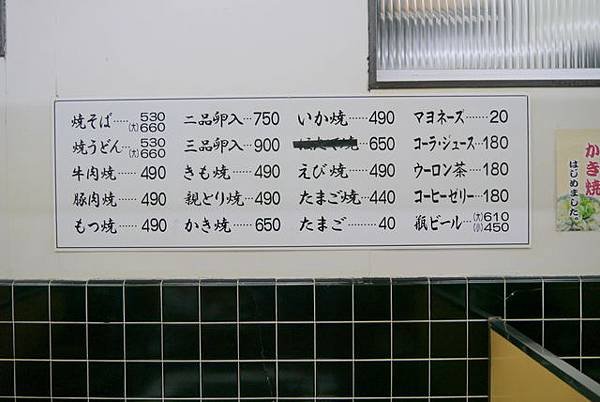 焼そば……530
(大)660
焼うどん…530
(大)660
牛肉焼……490
豚肉焼……490
もつ焼……490
二品卵入…750
三品卵入…900
きも焼……490
親とり焼…490
かき焼……650
いか焼……490
650
えび焼……490
たまご焼…440
たまご………40
マヨネーズ……20
コーラ・ジュース…180
ウーロン茶…180
コーヒーゼリー…180
瓶ビール…(大)610
(小)450
かき焼
はじめました。